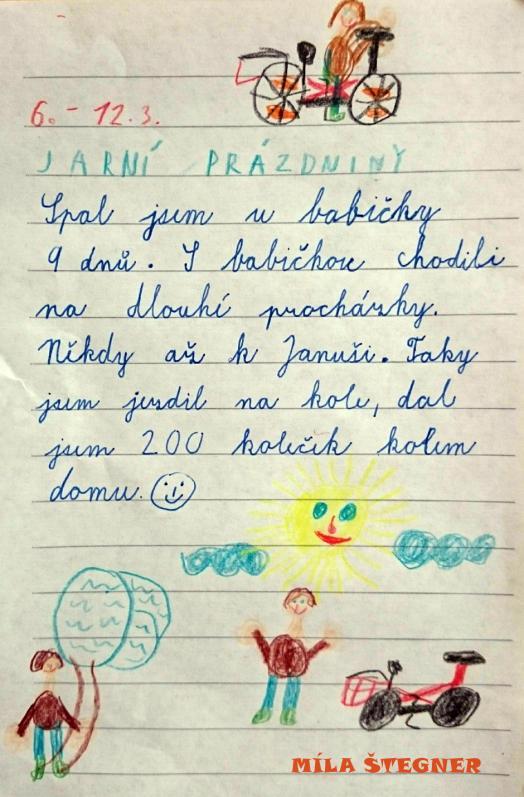 6. - 12.3.
JARNÍ PRÁZDNINY
Spal jsem u babičky
9 dnů. S babičkou chodili
na dlouhí procházky.
Někdy až k Januši. Taky
jsem jezdil na kole, dal
jsem 200 koleček kolem
domu.
MÍLA ŠTEGNER